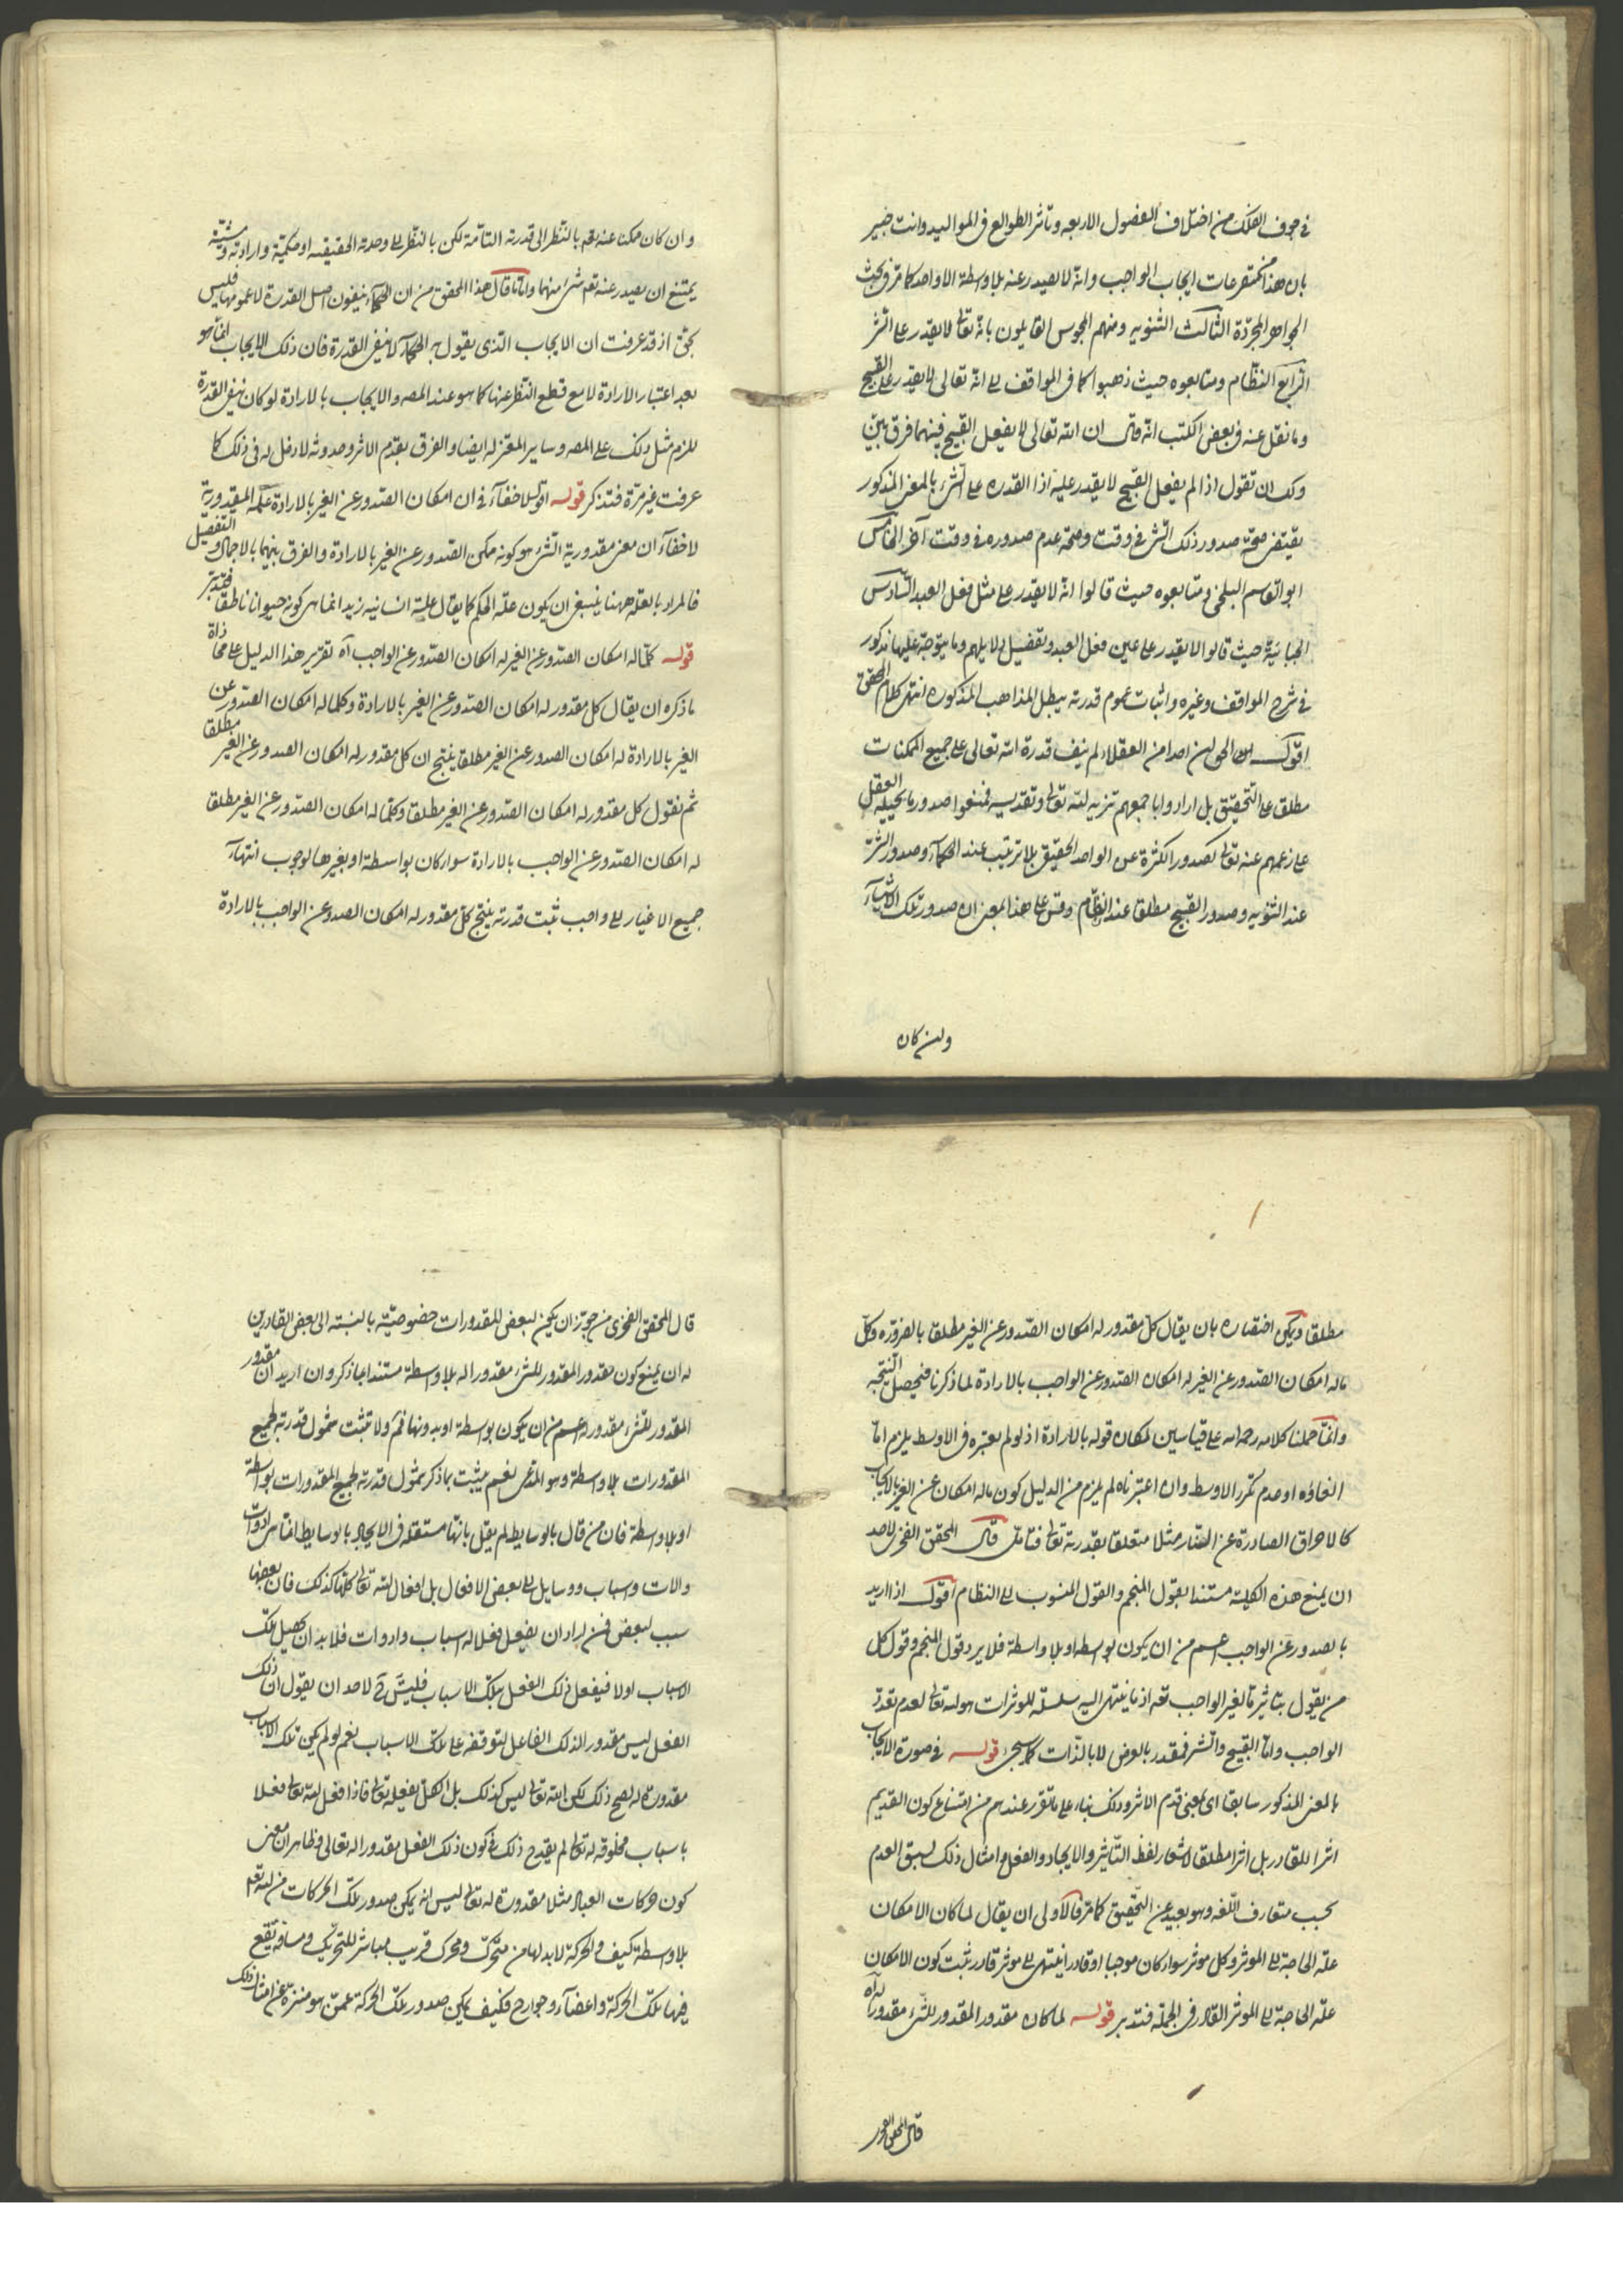 في جوف الفلك من اختلاف الفصول الاربعه وتأثر الطوالع في المواليد وانت خبير
بان هذا من متفرعات ايجاب الواجب وانه لا يصدر عنه بلا واسطة الا واحد كما مر في بحث
الجواهر المجردة الثالث الثنويه ومنهم المجوس القايلون بانه تعالى لا يقدر على الشر
الرابع النظام ومتابعوه حيث ذهبوا كما في المواقف الى انه تعالى لا يقدر على القبيح
وما نقل عنه في بعض الكتب انه قال ان الله تعالى لا يفعل القبيح فبينهما فرق بين
ولك ان تقول اذا لم يفعل القبيح لا يقدر عليه اذا القدره على الشيء بالمعنى المذكور
يقتضي صحة صدور ذلك الشيء في وقت وصحة عدم صدوره في وقت آخر الخامس
ابو القاسم البلخي ومتابعوه حيث قالوا انه لا يقدر على مثل فعل العبد السادس
الجبائية حيث قالوا لا يقدر على عين فعل العبد وتفصيل دلايلهم وما يتوجه عليها مذكور
في شرح المواقف وغيره واثبات عموم قدرته يبطل المذاهب المذكوره انتهى كلام المحقق
اقول احدا من العقلاء لم ينف قدرة الله تعالى على جميع الممكنات
مطلقا على التحقيق بل ارادوا باجمعهم تنزيه الله تعالى وتقديسه فمنعوا صدور ما يحيله العقل
على زعمهم عنه تعالى كصدور الكثرة عن الواحد الحقيقي بلا ترتيب عند الحكماء وصدور الشر
عند الثنويه وصدور القبيح مطلقا عند النظام وقس على هذا المعنى ان صدور تلك الاشياء
وان كان
وان كان ممكنا عنه تعم بالنظر الى قدرته التامة لكن بالنظر الى وحدته الحقيقيه او حكمته وارادته ومشيته
يمتنع ان يصدر عنه تعم شيء منها وما قال هذا المحقق من ان الحكماء ينفون اصل القدرة لا عمومها فليس
بحق اذ قد عرفت ان الايجاب الذي يقول به الحكماء لا ينفي القدرة فان ذلك الايجاب انما هو
بعد اعتبار الارادة لا مع قطع النظر عنها كما هو عند المصه والايجاب بالارادة لو كان ينفي القدرة
للزم مثل ذلك على المصه وساير المعتزله ايضا والفرق بقدم الاثر وحدوثه لا دخل له في ذلك كما
عرفت غير مرة فتذكر قوله اقول لا خفاء في ان امكان الصدور عن الغير بالارادة علة المقدورية
لا خفاء ان معنى مقدورية الشيء هو كونه ممكن الصدور عن الغير بالارادة والفرق بينهما بالاجمال والتفصيل
فالمراد بالعلة ههنا ينبغي ان يكون علة الحكم كما يقال علة انسانيه زيد انما هى كونه حيوانا ناطقا فتدبر
قوله كلما له امكان الصدور عن الغير له امكان الصدور عن الواجب آه تقرير هذا الدليل على محاذاة
ما ذكره ان يقال كل مقدور له امكان الصدور عن الغير بالارادة وكلما له امكان الصدور عن
الغير بالارادة له امكان الصدور عن الغير مطلقا ينتج ان كل مقدور له امكان الصدور عن الغير مطلقا
ثم نقول كل مقدور له امكان الصدور عن الغير مطلقا وكلما له امكان الصدور عن الغير مطلقا
له امكان الصدور عن الواجب بالارادة سواء كان بواسطة او بغيرها لوجوب انتهاء
جميع الاغيار الى واجب ثبت قدرته ينتج كل مقدور له امكان الصدور عن الواجب بالارادة
مطلقا ويمكن اختصاره بان يقال كل مقدور له امكان الصدور عن الغير مطلقا بالضرورة وكل
ما له امكان الصدور عن الغير له امكان الصدور عن الواجب بالارادة لما ذكرنا فتحصل النتيجه
وانما حملنا كلامه رحمه الله على قياسين لمكان قوله بالارادة اذ لو لم يعتبره في الاوسط يلزم اما
الغاؤه او عدم تكرر الاوسط وان اعتبرناه لم يلزم من الدليل كون ما له امكان عن الغير بالايجاب
كالاحراق الصادرة عن النار مثلا متعلقا بقدرته تعالى فتامل قال المحقق الفخري لاحد
ان يمنع هذه الكلية مستندا بقول المنجم والقول المنسوب الى النظام اقول اذا اريد
بالصدور عن الواجب اعم من ان يكون بواسطه او بلا واسطة فلا يرد قول المنجم وقول كل
من يقول بتاثير ما لغير الواجب تعه اذ ما ينتهى اليه سلسلة الموثرات هو الله تعالى لعدم تعدد
الواجب واما القبيح والشر فمقدر بالعرض لا بالذات كما سيجئ قوله في صورة الايجاب
بالمعنى المذكور سابقا اى بمعنى قدم الاثر وذلك بناء على ما تقرر عندهم من امتناع كون القديم
اثرا للقادر بل اثرا مطلقا لاشعار لفظ التاثير والايجاد والفعل وامثال ذلك لسبق العدم
بحسب متعارف اللغه وهو بعيد عن التحقيق كما مر فالاولى ان يقال لما كان الامكان
علة الحاجة الى الموثر وكل موثر سواء كان موجبا او قادرا ينتهى الى موثر قادر ثبت كون الامكان
علة الحاجة الى الموثر القادر في الجملة فتدبر قوله لما كان مقدور المقدور للشيء مقدورا له آه
قال المحقق الفخرى
قال المحقق الفخرى من جوز ان يكون لبعض المقدورات خصوصيته بالنسبة الى بعض القادرين
له ان يمنع كون مقدور المقدور للشيء مقدورا له بلا واسطة مستندا بما ذكر وان اريد ان مقدور
المقدور للشيء مقدور له اعم من ان يكون بواسطة او بدونها فمسلم ولا تثبت شمول قدرته لجميع
المقدورات بلا واسطة وهو المدعى نعم يثبت بما ذكر شمول قدرته لجميع المقدورات بواسطة
او بلا واسطة فان من قال بالوسايط لم يقل بانها مستقلة في الايجاد بالوسايط انما هى ادوات
والات واسباب ووسايل الى بعض الافعال بل افعال الله تعالى كلها كذلك فان بعضها
سبب لبعض فمن اراد ان يفعل فعلا له اسباب وادوات فلا بد ان يحصل تلك
الاسباب اولا فيفعل ذلك الفعل بتلك الاسباب فليس ح لاحد ان يقول ان ذلك
الفعل ليس مقدورا لذلك الفاعل لتوقفه على تلك الاسباب نعم لو لم يكن تلك الاسباب
مقدورة له لصح ذلك لكن الله تعالى ليس كذلك بل الكل بفعله تعالى فاذا فعل الله تعالى فعلا
باسباب مخلوقه له تعالى لم يقدح ذلك في كون ذلك الفعل مقدورا له تعالى فظاهر ان معنى
كون حركات العباد مثلا مقدورة له تعالى ليس انه يمكن صدور تلك الحركات من الله تعم
بلا واسطة كيف والحركة لا بد لها من متحرك ومحرك قريب مباشر للتحريك ومسافة يقع
فيها تلك الحركة واعضاء وجوارح فكيف يمكن صدور تلك الحركة عمن هو منزه عن امثال ذلك